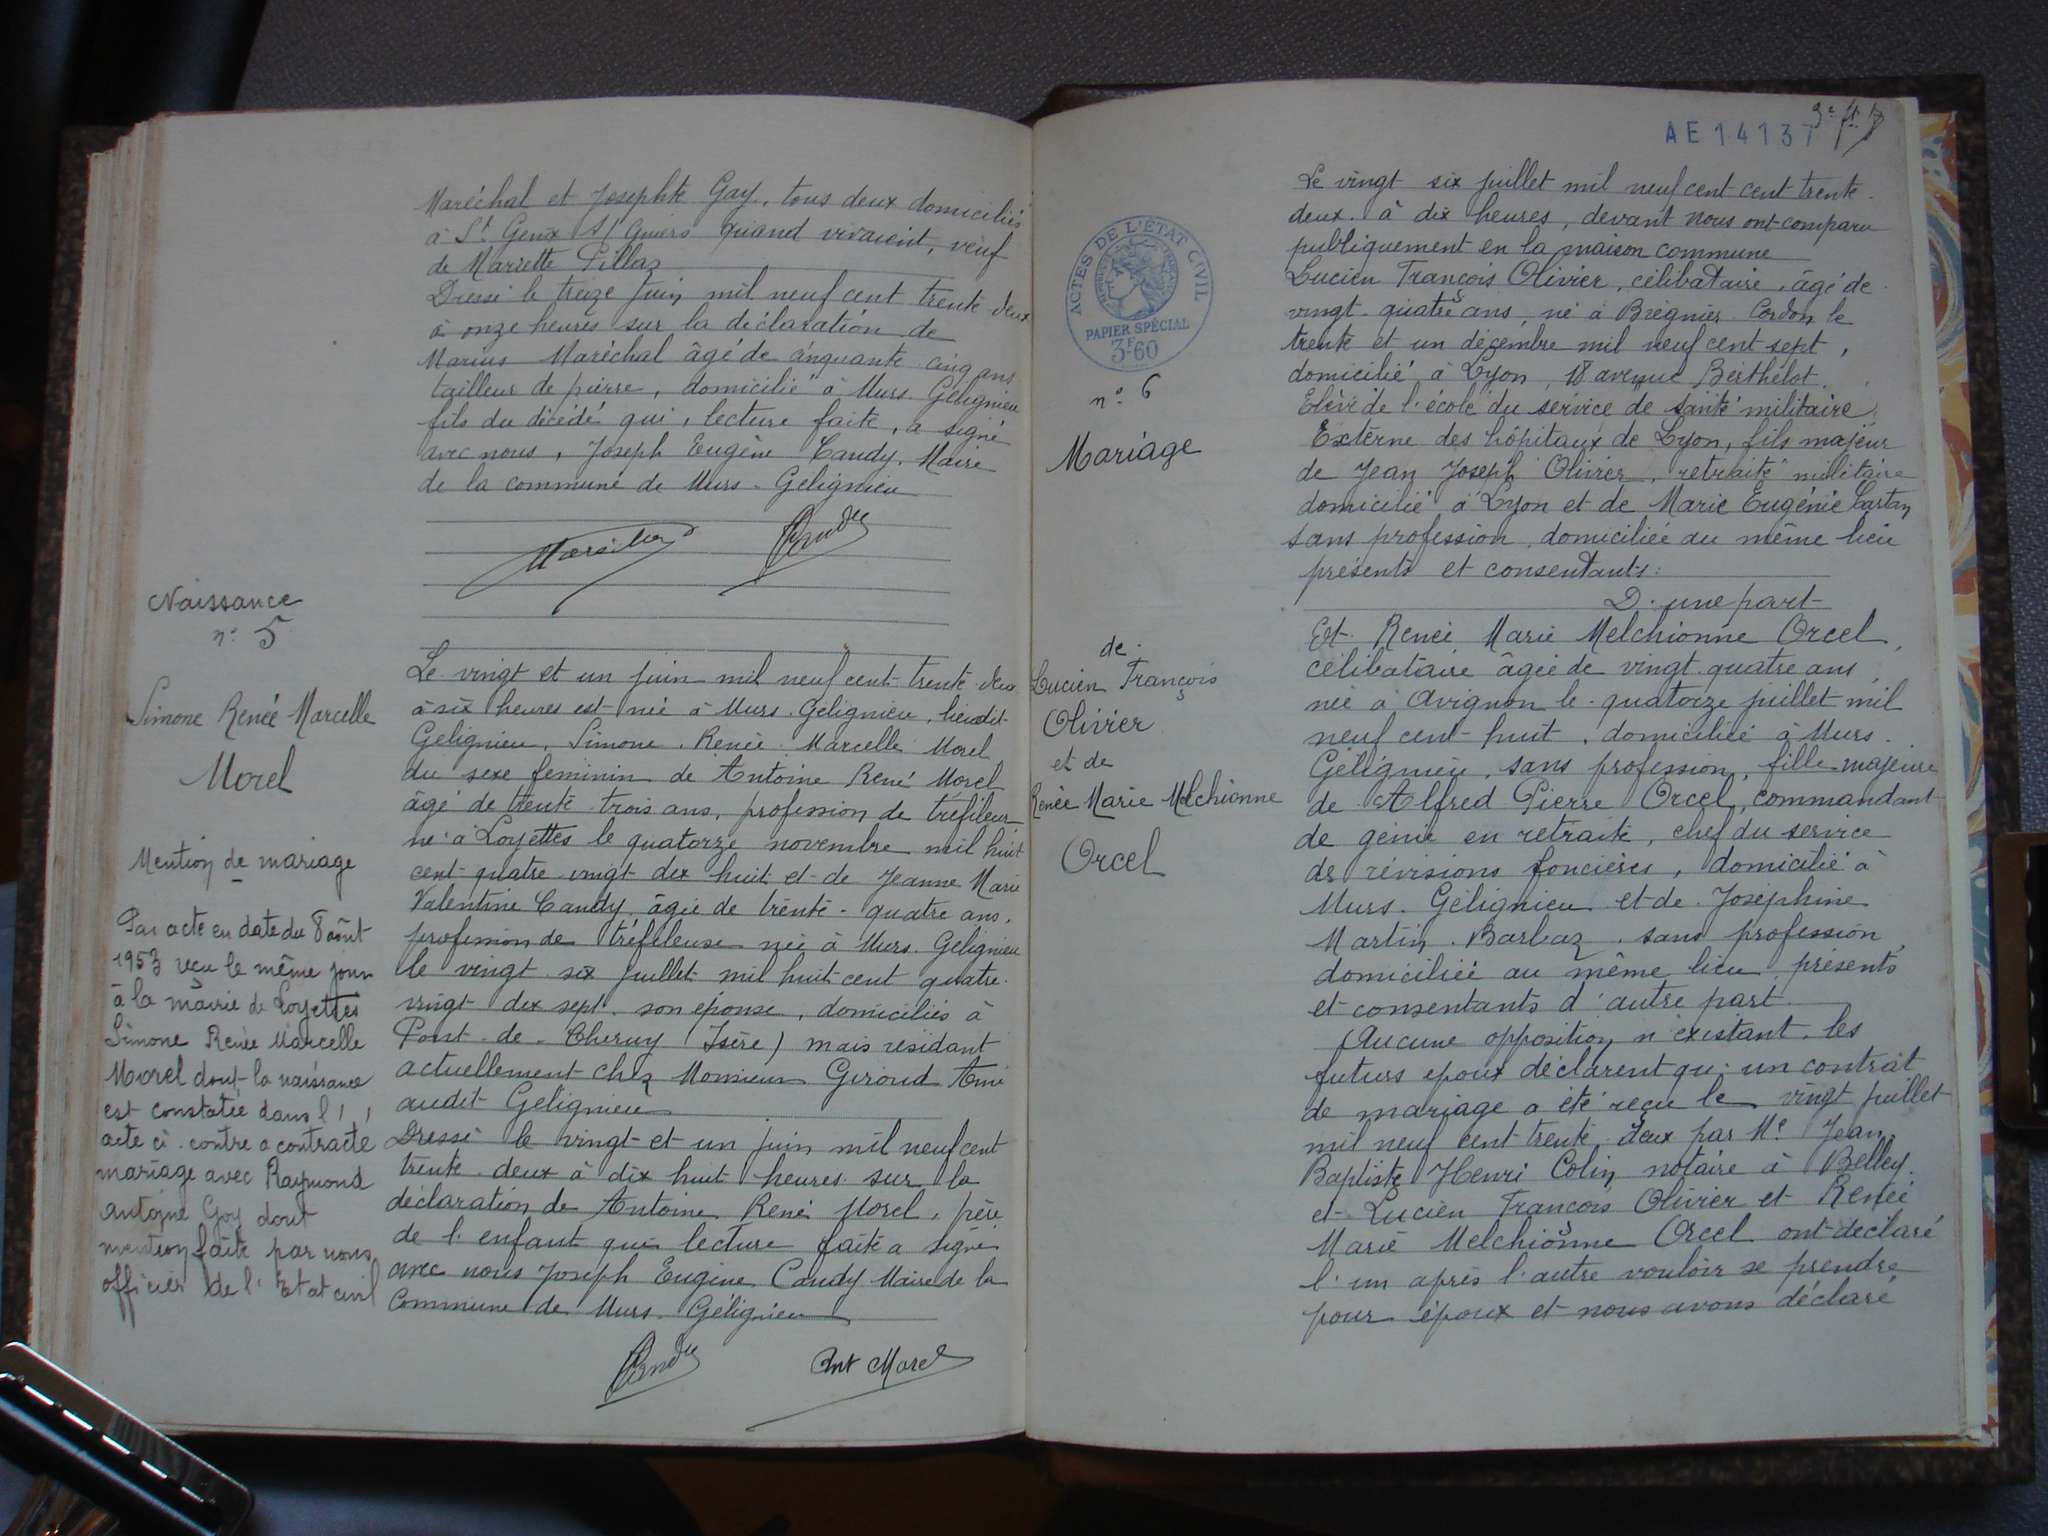 Maréchal et Josephte Gay, tous deux domiciliés
à St Genix s/ Guiers quand vivaient, veuf
de Mariette Pillaz
Dressé le treize juin mil neuf cent trente deux
à onze heures sur la déclaration de
Marius Maréchal âgé de cinquante cinq ans
tailleur de pierre, domicilié à Murs. Gélignieu
fils du décédé qui, lecture faite, a signé
avec nous, Joseph Eugène Candy, Maire
de la commune de Murs-Gelignieu
Candy
Naissance
n° 5
Simone Renée Marcelle
Morel
Mention de mariage
Par acte en date du 8 août
1953 reçu le même jour
à la mairie de Loyettes
Simone Renée Marcelle
Morel dont la naissance
est constatée dans l'
acte ci-contre a contracté
mariage avec Raymond
Antoine Goy dont
mention faite par nous
officier de l'Etat civil
Le vingt et un juin mil neuf cent trente deux
à six heures est née à Murs. Gelignieu, lieudit
Gelignieu, Simone. Renée. Marcelle Morel
du sexe feminin de Antoine René Morel
âgé de trente-trois ans, profession de tréfileur
né à Loyettes le quatorze novembre mil huit
cent-quatre-vingt dix huit et de Jeanne Marie
Valentine Candy, âgée de trente-quatre ans,
profession de tréfileuse née à Murs. Gelignieu
le vingt six juillet mil huit cent quatre
vingt dix sept. son épouse, domiciliés à
Pont-de-Cheruy Isère) mais résidant
actuellement chez Monsieur Giroud Amé
audit Gelignieu
Dressé le vingt-et un juin mil neuf cent
trente-deux à dix huit heures sur la
déclaration de Antoine René Morel, père
de l'enfant qui lecture faite a signé
avec nous Joseph Eugène Candy Maire de la
Commune de Murs. Gélignieu
Candy
Ant Morel
AE 14137
ACTES DE L'ÉTAT CIVIL
PAPIER SPÉCIAL
3F60
n° 6
Mariage
de
Lucien François
Olivier
et de
Renée Marie Melchionne
Orcel
Le vingt six juillet mil neuf cent cent trente-
deux à dix heures, devant nous ont comparu
publiquement en la maison commune
Lucien François Olivier, célibataire, âgé de
vingt-quatre ans, né à Brégnier-Cordon le
trente et un décembre mil neuf cent sept,
domicilié à Lyon, 18 avenue Berthelot,
Elève de l'école du service de santé militaire
Externe des hôpitaux de Lyon, fils majeur
de Jean Joseph Olivier, retraité militaire
domicilié à Lyon et de Marie Eugénie Cartan
sans profession, domiciliée au même lieu
présents et consentants:
D'une part
Et Renée Marie Melchionne Orcel,
célibataire âgée de vingt-quatre ans
née à Avignon le quatorze juillet mil
neuf cent-huit, domiciliée à Murs-
Gélignieu, sans profession, fille majeure
de Alfred Pierre Orcel, commandant
de génie en retraite, chef du service
des révisions foncières, domicilié à
Murs. Gélignieu et de Joséphine
Martin-Barbaz, sans profession,
domiciliée au même lieu présents
et consentants d'autre part.
Aucune opposition n'existant, les
futurs époux déclarent qu'un contrat
de mariage a été reçu le vingt juillet
mil neuf cent trente-deux par Me Jean
Baptiste Henri Colin notaire à Belley.
et Lucien François Olivier et Renée
Marie Melchionne Orcel ont déclaré
l'un après l'autre vouloir se prendre
pour époux et nous avons déclaré